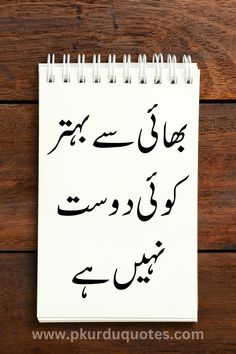 بھائی سے بہتر
کوئی دوست
نہیں ہے
www.pkurduquotes.com